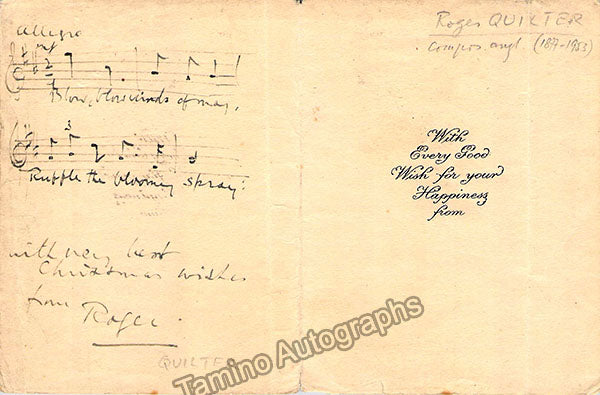 Allegro
mf
Blow, blow winds of may,
3
Ruffle the bloomy spray:
with very best
Christmas wishes
from
Roger
QUILTER
Roger QUILTER
Compos. angl. (1877-1953)
With
Every Good
Wish for your
Happiness
from
Tamino Autographs